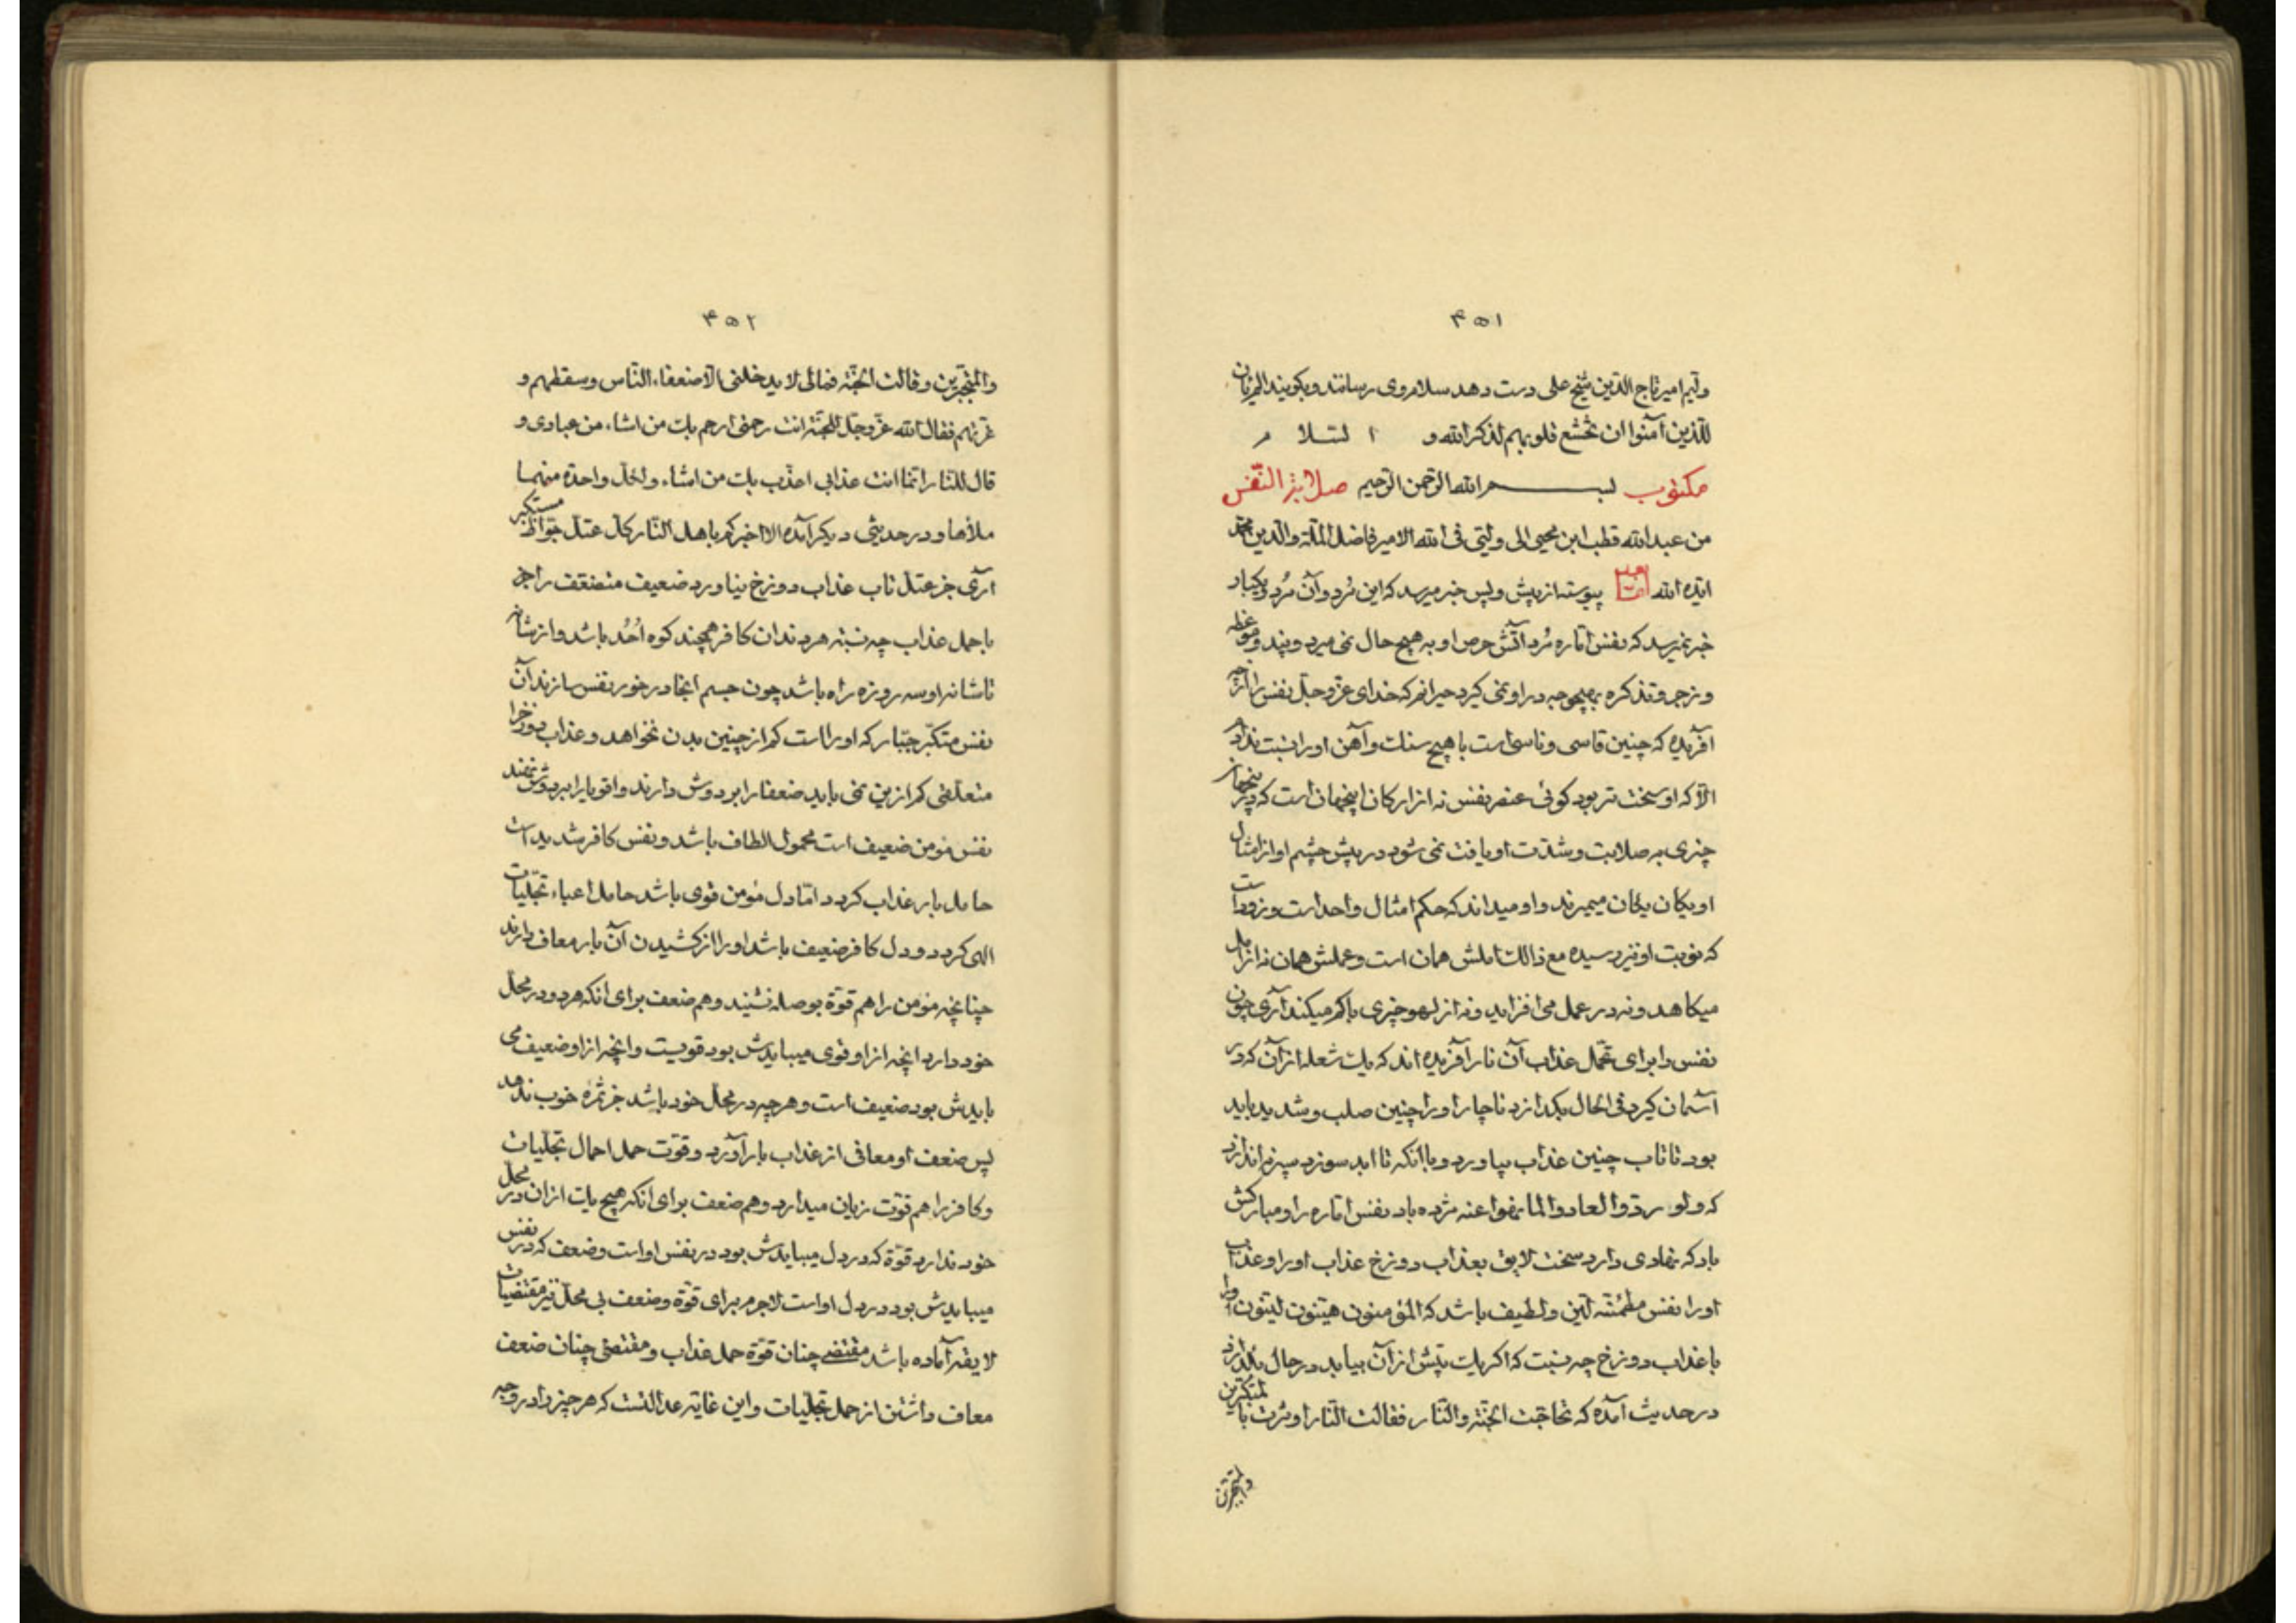 ۴۵۱
ولیم امیر تاج الدین شیخ علی دست دهد سلام وی رسانند و بکویند الم یأن
للذین آمنوا ان تخشع قلوبهم لذکر الله و السلام
مکتوب بسم الله الرحمن الرحیم صلابة النفس
من عبدالله قطب ابن محیی الی ولیّی فی الله الامیر فاضل الملة والدین محمد
ایّده الله پیوسته از پیش و پس خبر میرسد که این مُرد و آن مُرد و یکبار
خبر نمیرسد که نفس امّاره مُرد آتش حرص او به هیچ حال نمی میرد و پند و موعظه
و زجر و تذکره بهیچوجه در او نمی کیرد حیرانم که خدای عزّ وجلّ نفس را از چه
آفریده که چنین قاسی و ناسی است با هیچ سنک و آهن او را نسبت ندادم
الا که او سخت تر بود کوئی عنصر نفس نه از ارکان اینجهان است که در اینجهان
چیزی به صلابت و شدّت او یافت نمی شود در پیش چشم او از امثال
او یکان یکان میمیرند و او میداند که حکم امثال واحد است و زود است
که نوبت او نیز رسیده مع ذالک املش همان است و عملش همان نه از امل
میکاهد و نه در عمل می افزاید و نه از لهو چیزی باکم میکند آری چون
نفس را برای تحمّل عذاب آن نار آفریده اند که یک شعله از آن که در
آسمان کیرد فی الحال بکدازد ناچار او را چنین صلب و شدید باید
بود تا تاب چنین عذاب بیاورد و با آنکه تا ابد سوزد سپر نه اندازد
که ولو ردّوا لعادوا لما نهوا عنه مژده باد نفس امّاره را و مبارکش
باد که نهادی دارد سخت لایق بعذاب دوزخ عذاب او را و عذاب
او را نفس مطمئنه لیّن و لطیف باشد که المؤمنون هیّنون لیّنون او را
با عذاب دوزخ چه نسبت که اکر یک تپش از آن بیابد در حال بکدازد
در حدیث آمده که تحاجّت الجنّة والنّار فقالت النّار اوثرت بالمتکبّرین
والمتجبّرین
۴۵۲
والمتجبّرین و قالت الجنّة فمالی لا یدخلنی الا ضعفاء النّاس و سقطهم و
غرّتهم فقال الله عزّ وجلّ للجنّة انت رحمتی ارحم بک من اشاء من عبادی و
قال للنّار انّما انت عذابی اعذّب بک من اشاء ولکلّ واحدة منهما
ملأها و در حدیثی دیکر آمده الا اخبرکم باهل النّار کلّ عتلّ جوّاظ مستکبر
آری جز عتلّ تاب عذاب دوزخ نیاورد ضعیف متضعّف را چه
با حمل عذاب چه نسبة هر دندان کافر همچند کوه اُحُد باشد و از شانه
تا شانه او سه روزه راه باشد چون جسم انجا در خور نفس سازند آن
نفس متکبّر جبّار که او راست کم از چنین بدن نخواهد و عذاب دوزخ را
متعلّقی کم ازین نمی باید ضعفا را بر دوش دارند و اقویا را بر دوش نهند
نفس مؤمن ضعیف است محمول الطاف باشد و نفس کافر شدید است
حامل بار عذاب کردد امّا دل مؤمن قوی باشد حامل اعباء تجلّیات
الهی کردد و دل کافر ضعیف باشد او را از کشیدن آن بار معاف دارند
چنانچه مؤمن را هم قوّة بوصله نشیند و هم ضعف برای انکه هر دو در محل
خود دارد انچه از او قوی میبایدش بود قویست و انچه از او ضعیف می
بایدش بود ضعیف است و هر چه در محل خود باشد جز ثمره خوب ندهد
پس ضعف او معافی از عذاب بار آورد و قوّت حمل احمال تجلّیات
و کافر را هم قوّت زیان میدارد و هم ضعف برای انکه هیچ یک از ان در محل
خود ندارد قوّة که در دل میبایدش بود در نفس او است و ضعف که در نفس
میبایدش بود در دل او است لاجرم برای قوّة و ضعف بی محل نیز مقتضیات
لایقه آماده باشد مقتضی چنان قوّة حمل عذاب و مقتضی چنان ضعف
معاف داشتن از حمل تجلّیات و این غایة عدالتست که هر چیز را در وجه